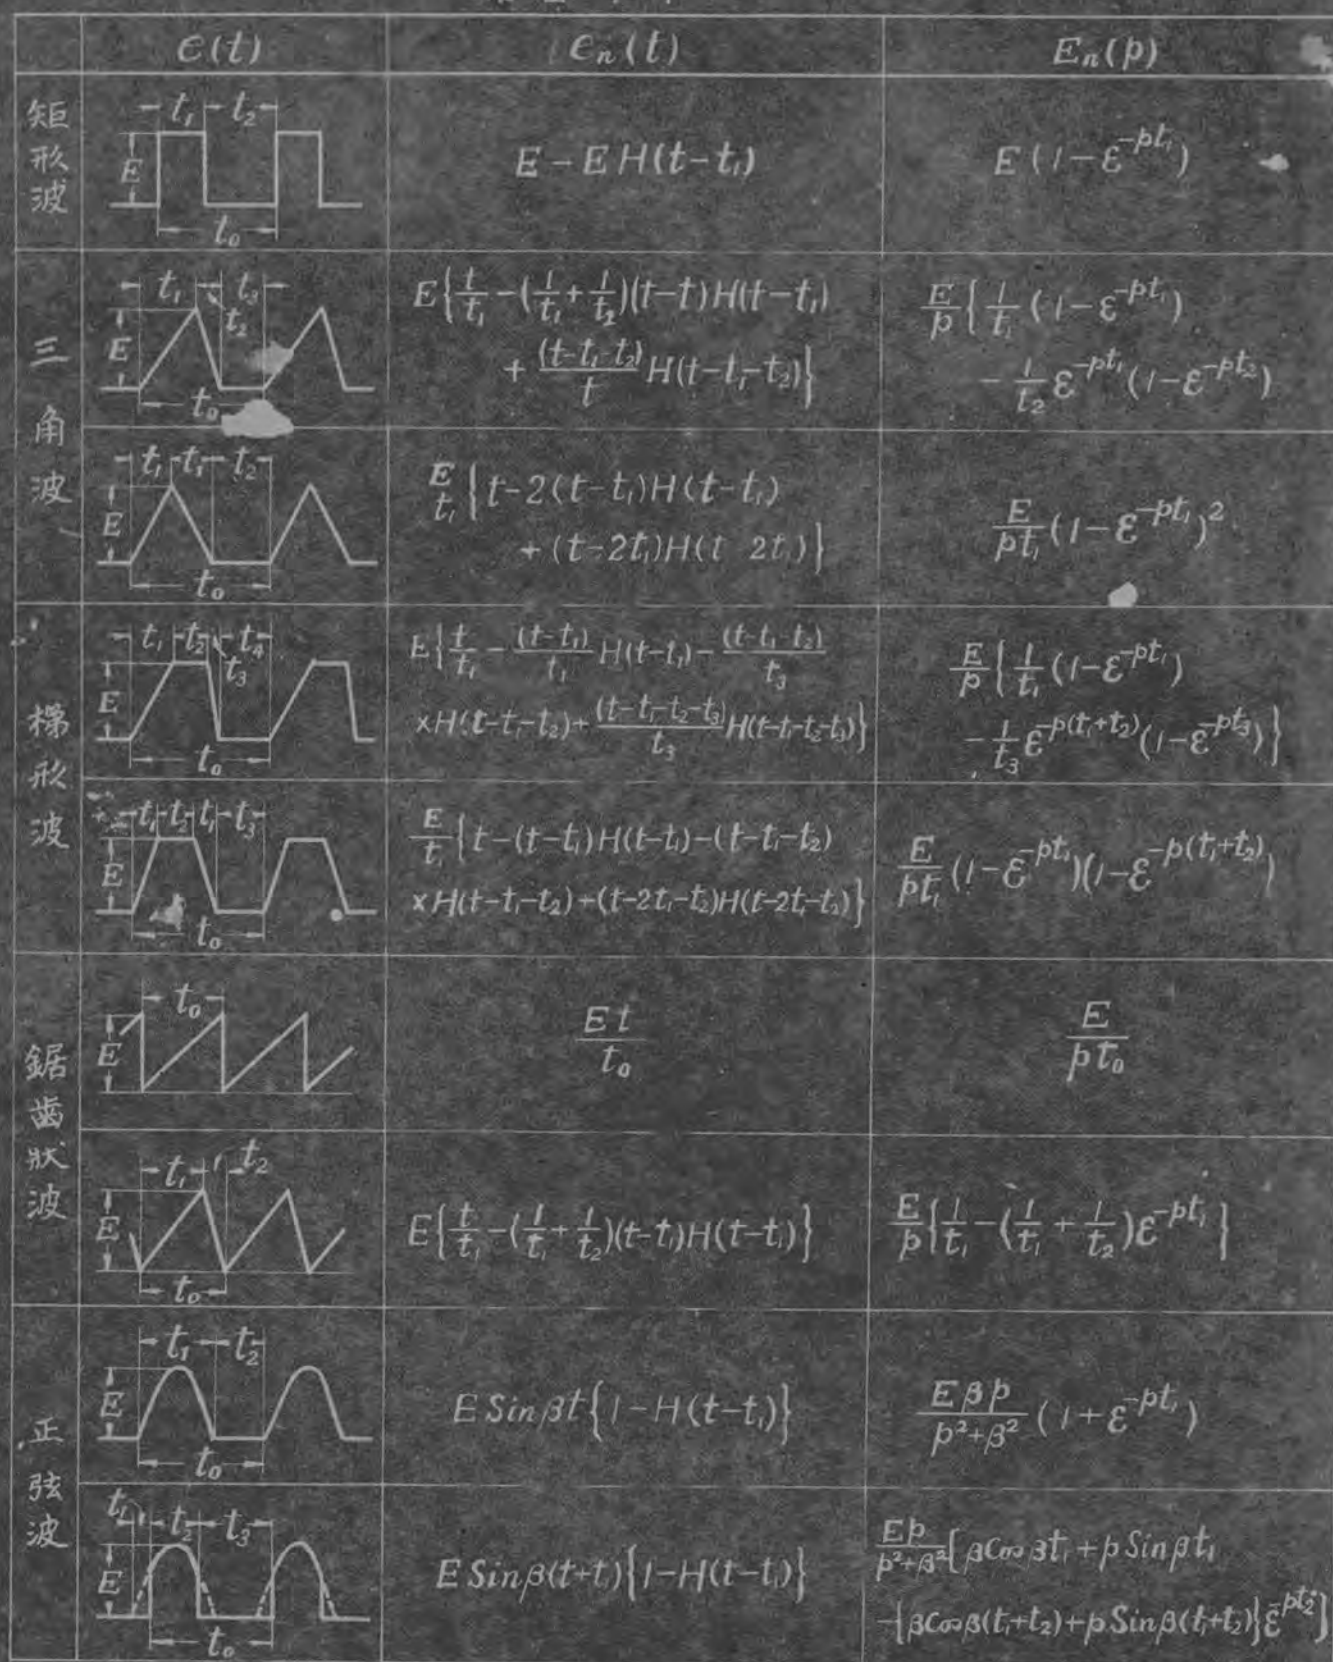 e(t) e_n(t) E_n(p)
矩形波
t₁ t₂
E
t₀
E − E H(t−t₁)
E(1−ε^{−pt₁})
三角波
t₁ t₃
t₂
E
t₀
E{t/t₁ − (1/t₁ + 1/t₂)(t−t)H(t−t₁)
+ (t−t₁−t₂)/t H(t−t₁−t₂)}
E/p {1/t₁ (1−ε^{−pt₁})
− 1/t₂ ε^{−pt₁}(1−ε^{−pt₂})
t₁ t₁ t₂
E
t₀
E/t₁ {t−2(t−t₁)H(t−t₁)
+ (t−2t₁)H(t 2t₁)}
E/pt₁ (1−ε^{−pt₁})²
梯形波
t₁ t₂ t₄
t₃
E
t₀
E{t/t₁ − (t−t₁)/t₁ H(t−t₁) − (t−t₁−t₂)/t₃
×H(t−t₁−t₂) + (t−t₁−t₂−t₃)/t₃ H(t−t₁−t₂−t₃)}
E/p {1/t₁ (1−ε^{−pt₁})
− 1/t₃ ε^{−p(t₁+t₂)}(1−ε^{−pt₃})}
t₁ t₂ t₁ t₃
E
t₀
E/t₁ {t−(t−t₁)H(t−t₁)−(t−t₁−t₂)
×H(t−t₁−t₂)+(t−2t₁−t₂)H(t−2t₁−t₂)}
E/pt₁ (1−ε^{−pt₁})(1−ε^{−p(t₁+t₂)})
鋸齒狀波
t₀
E
Et/t₀
E/pt₀
t₁ t₂
E
t₀
E{t/t₁ − (1/t₁ + 1/t₂)(t−t₁)H(t−t₁)}
E/p {1/t₁ − (1/t₁ + 1/t₂)ε^{−pt₁}}
正弦波
t₁ t₂
E
t₀
E Sin βt{1−H(t−t₁)}
Eβp/(p²+β²) (1+ε^{−pt₁})
t₁ t₂ t₃
E
t₀
E Sin β(t+t₁){1−H(t−t₁)}
Ep/(p²+β²) [β Cos βt₁ + p Sin βt₁
−{β Cos β(t₁+t₂) + p Sin β(t₁+t₂)}ε^{−pt₂}]